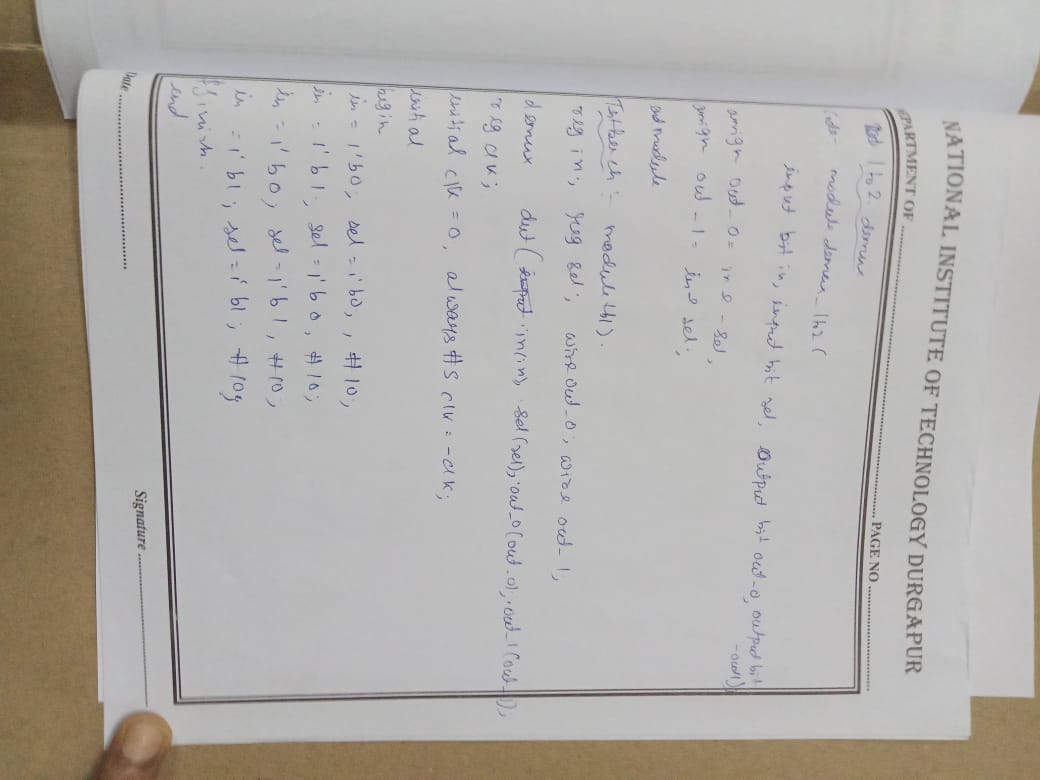 NATIONAL INSTITUTE OF TECHNOLOGY DURGAPUR
EPARTMENT OF ........ PAGE NO ........
1 to 2 demux
Code- module demux_1to2 (
input bit in, input bit sel, output bit out_0, output bit
out1);
assign out_0 = in & ~sel;
assign out_1 = in & sel;
end module
Testbench :- module tb1).
reg in; reg sel; wire out_0; wire out_1;
demux dut (.in(in), sel(sel), .out_0(out_0), .out_1(out_1);
reg clk;
initial clk = 0, always #5 clk = ~clk;
initial
begin
in = 1'b0; sel = 1'b0; , #10;
in = 1'b1; sel = 1'b0, #10;
in = 1'b0; sel = 1'b1, #10;
in = 1'b1; sel = 1'b1; #10;
$finish.
end
Date ........ Signature ........